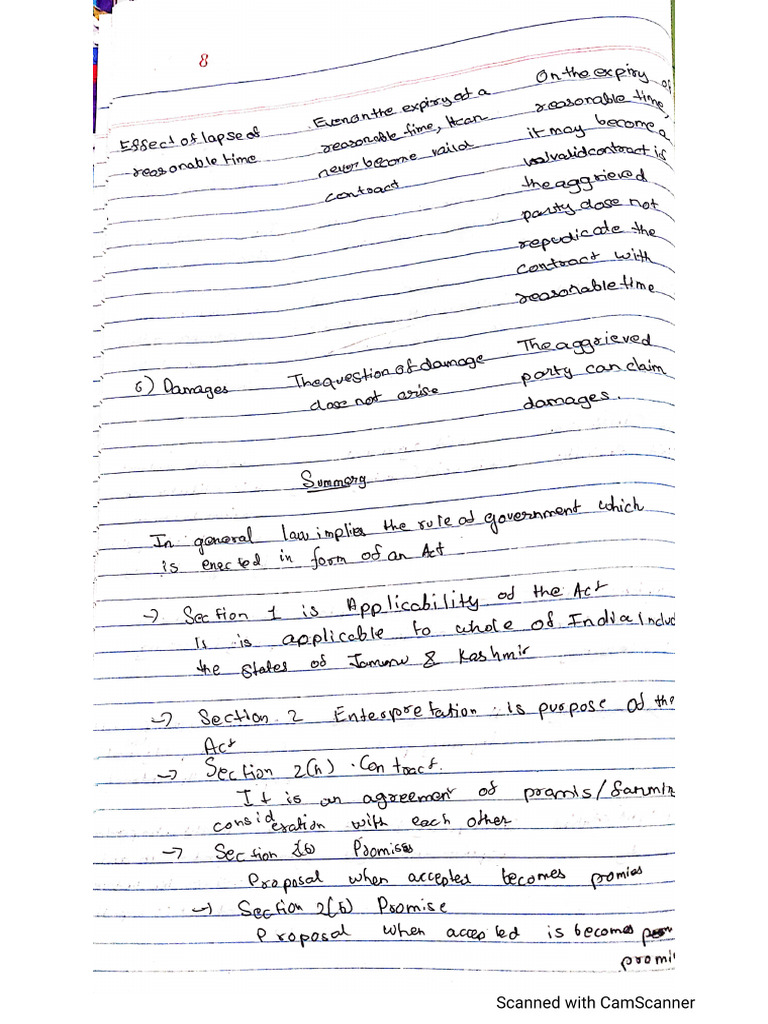 8
Effect of lapse of
reasonable time
Even on the expiry of a
reasonable time, It can
never become vaild
contract
On the expiry of
reasonable time,
it may become a
valid contract is
the aggrieved
party dose not
repudicate the
contract with
reasonable time
6) Damages
The question of damage
dose not arise
The aggrieved
party can claim
damages.
Summery
In general law implies the rule of government which
is enected in form of an Act
→ Section 1 is Applicability of the Act
It is applicable to whole of India Includ
the states of Jammu & Kashmir
→ Section 2 Enterpretation is purpose of the
Act
→ Section 2(h) . Contract.
It is an agreement of promis/
consideration with each other
→ Section Promises
Proposal when accepted becomes promies
→ Section 2(b) Promise
Proposal when accepted is becomes
promi
Scanned with CamScanner